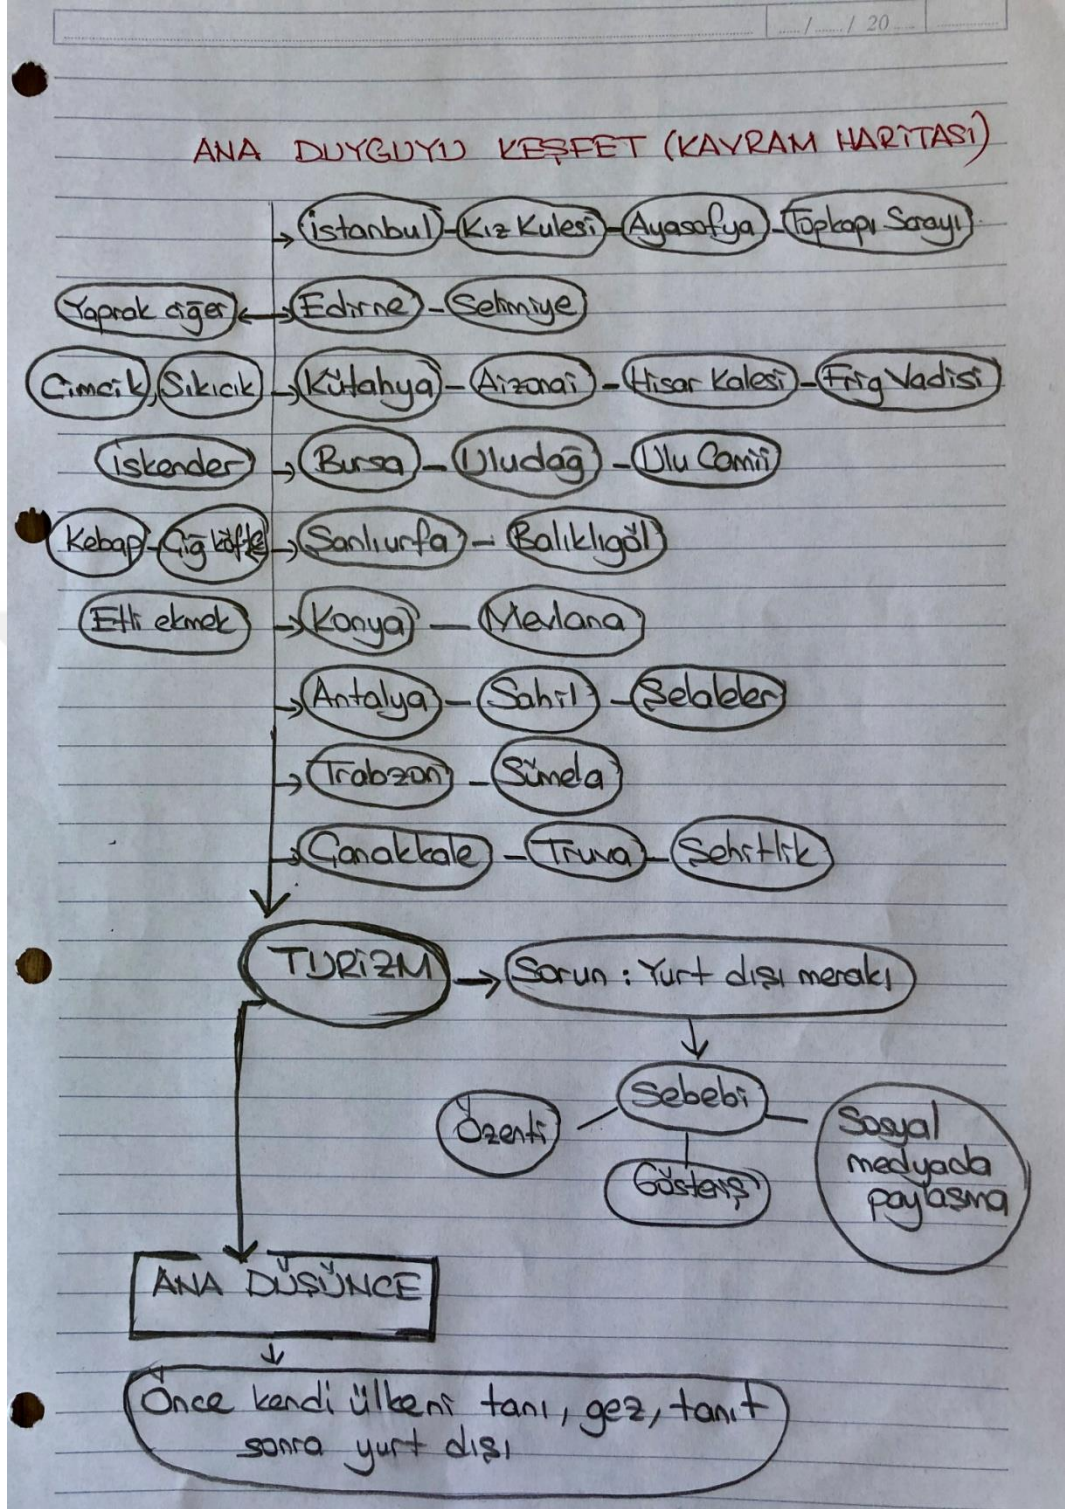 ...../...../ 20.....
ANA DUYGUYU KEŞFET (KAVRAM HARİTASI)
İstanbul - Kız Kulesi - Ayasofya - Topkapı Sarayı
Yaprak ciğer Edirne - Selimiye
Cimcik, Sıkıcık Kütahya - Aizonai - Hisar Kalesi - Frig Vadisi
İskender Bursa - Uludağ - Ulu Camii
Kebap - Çiğ köfte Şanlıurfa - Balıklıgöl
Etli ekmek Konya - Mevlana
Antalya - Sahil - Şelaleler
Trabzon - Sümela
Çanakkale - Truva - Şehitlik
TURİZM Sorun : Yurt dışı merakı
Sebebi
Özenti
Gösteriş
Sosyal
medyada
paylaşma
ANA DÜŞÜNCE
Önce kendi ülkeni tanı, gez, tanıt
sonra yurt dışı